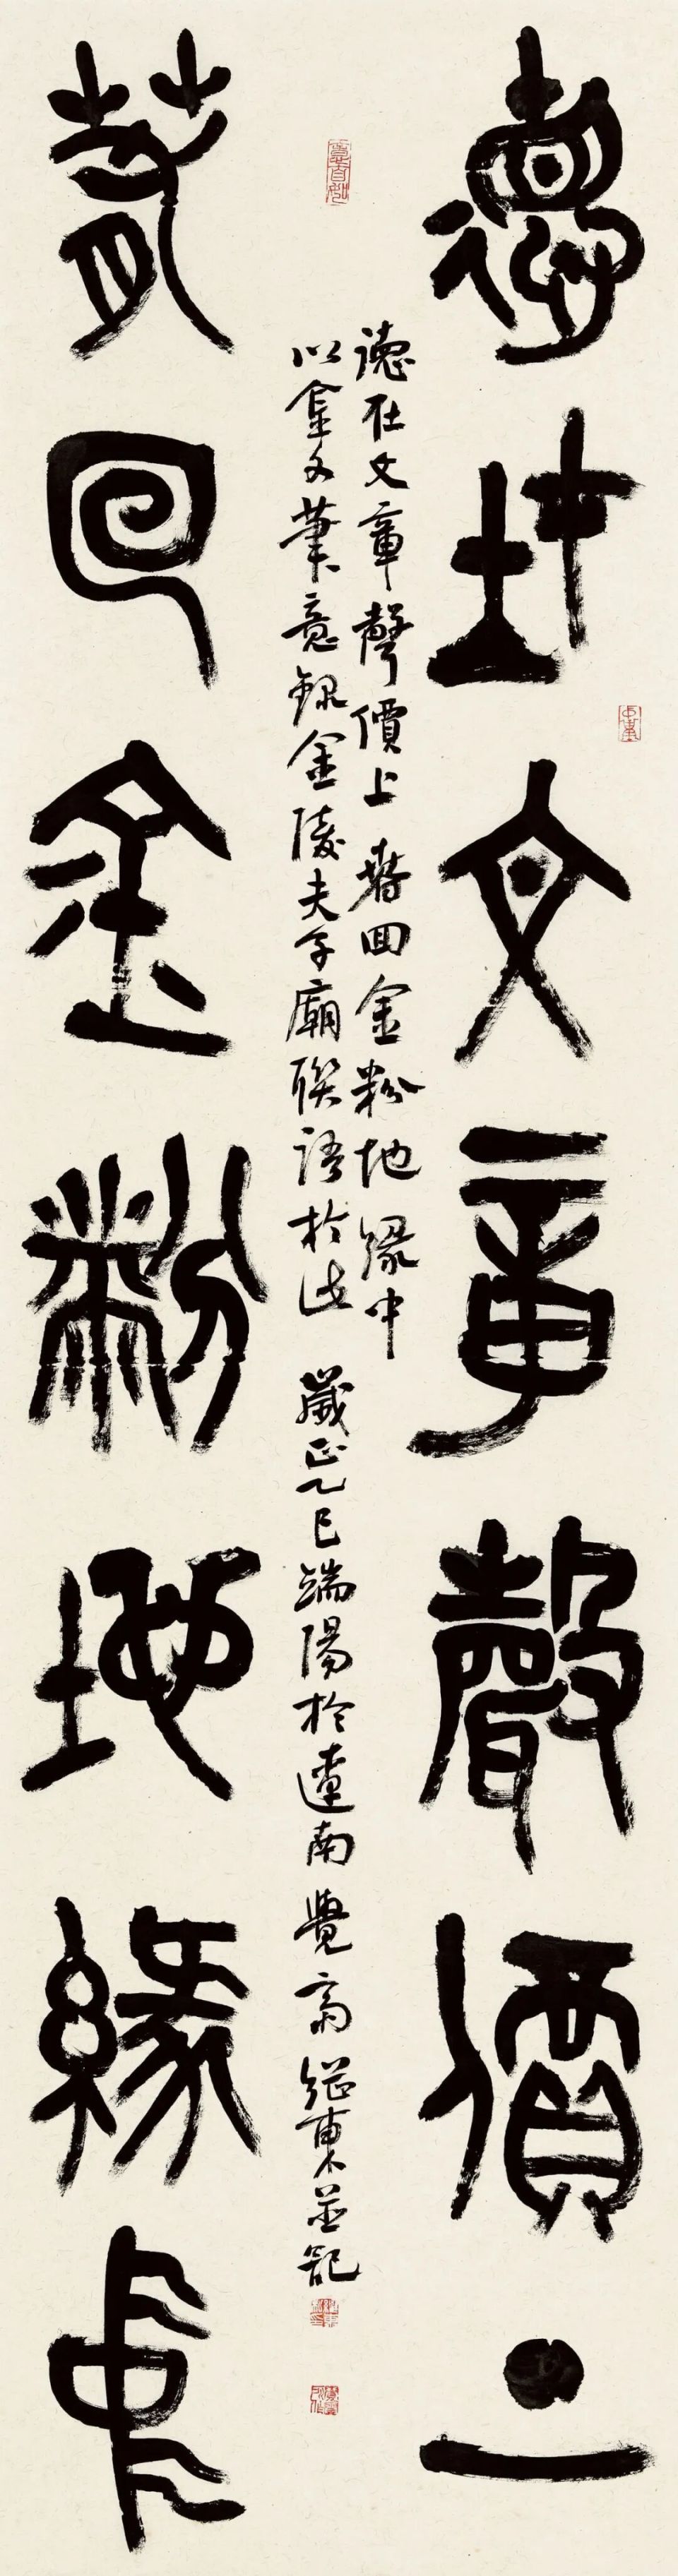 德在文章聲價上
春回金粉地緣中
德在文章聲價上 春回金粉地緣中
以金文筆意錄金陵夫子廟聯語於此 歲在乙巳端陽於遼南覺齋 延東並記